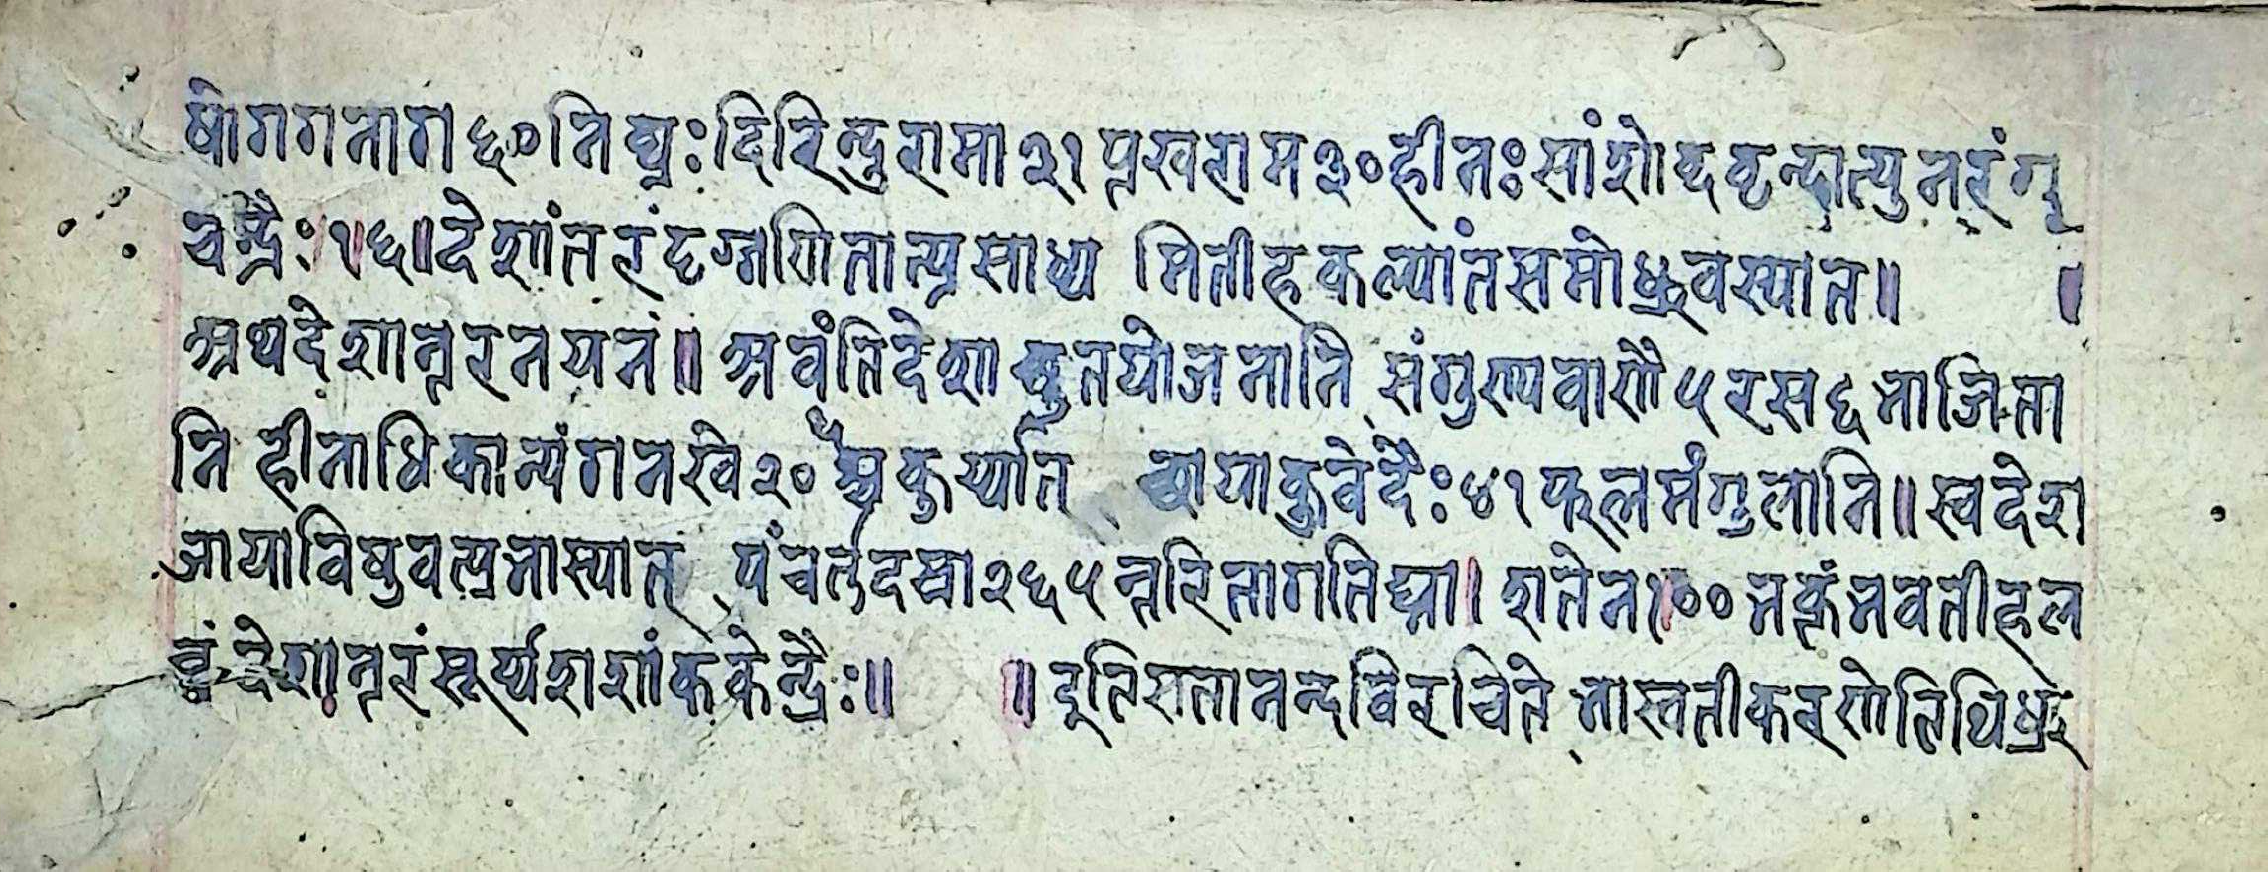 षोगगनाग ६० निघ्नः दिरिन्दुरामा ३१ प्तखराम ३० हीनः सांशोब्दवृन्दात्पुनरंगू
चन्द्रैः १६॥ देशांतरं दृग्गणितात्प्रसाध्य मितीहकल्पांतसमोध्रुवस्यात॥ ॥
अथदेशान्तरनयनं॥ अवंतिदेशाच्युतयोजनानि संगुण्यवाणै ५ रस ६ भाजिता
नि हीनाधिकान्यंगनखे २० श्चकुर्य्यात् छायाकुवेदैः ४१ फलमंगुलानि॥ स्वदेश
जायाविषुवत्प्रभास्यात् पंचर्तुदस्रा २६५ न्तरितागतिघ्ना। शतेन १०० भक्तंभवतीहल
ब्धं देशान्तरं सूर्य्यशशांककेन्द्रैः॥ ॥ इतिसतानन्दविरचिते भास्वतीकरणेतिथिध्रुव